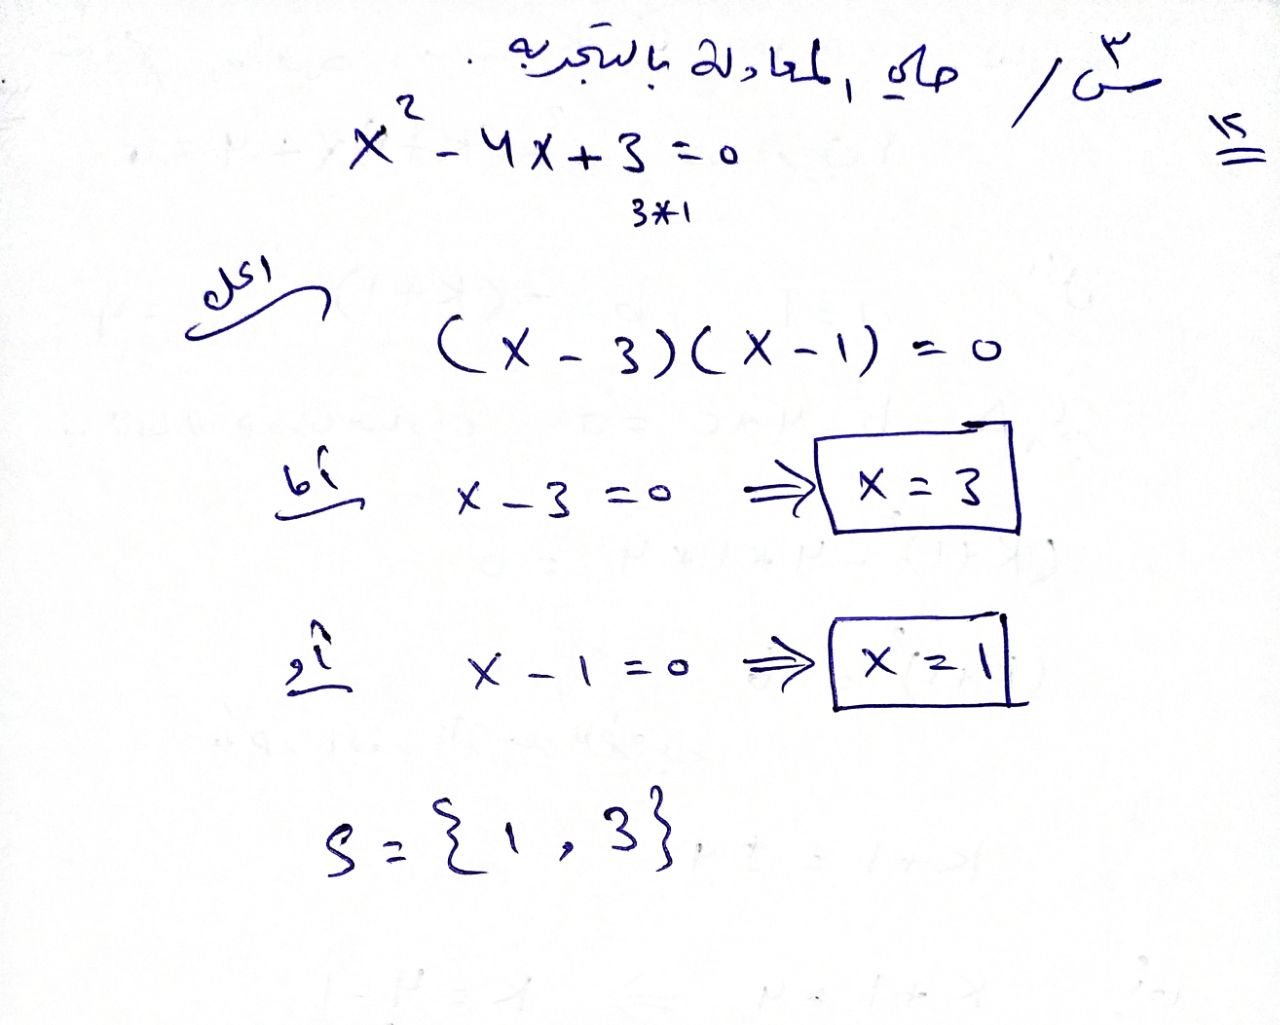 س٣/ حل المعادلة بالتجربه .
x² - 4x + 3 = 0
3*1
الحل
(x - 3)(x - 1) = 0
أما x - 3 = 0 ⇒ x = 3
أو x - 1 = 0 ⇒ x = 1
S = {1 , 3}.